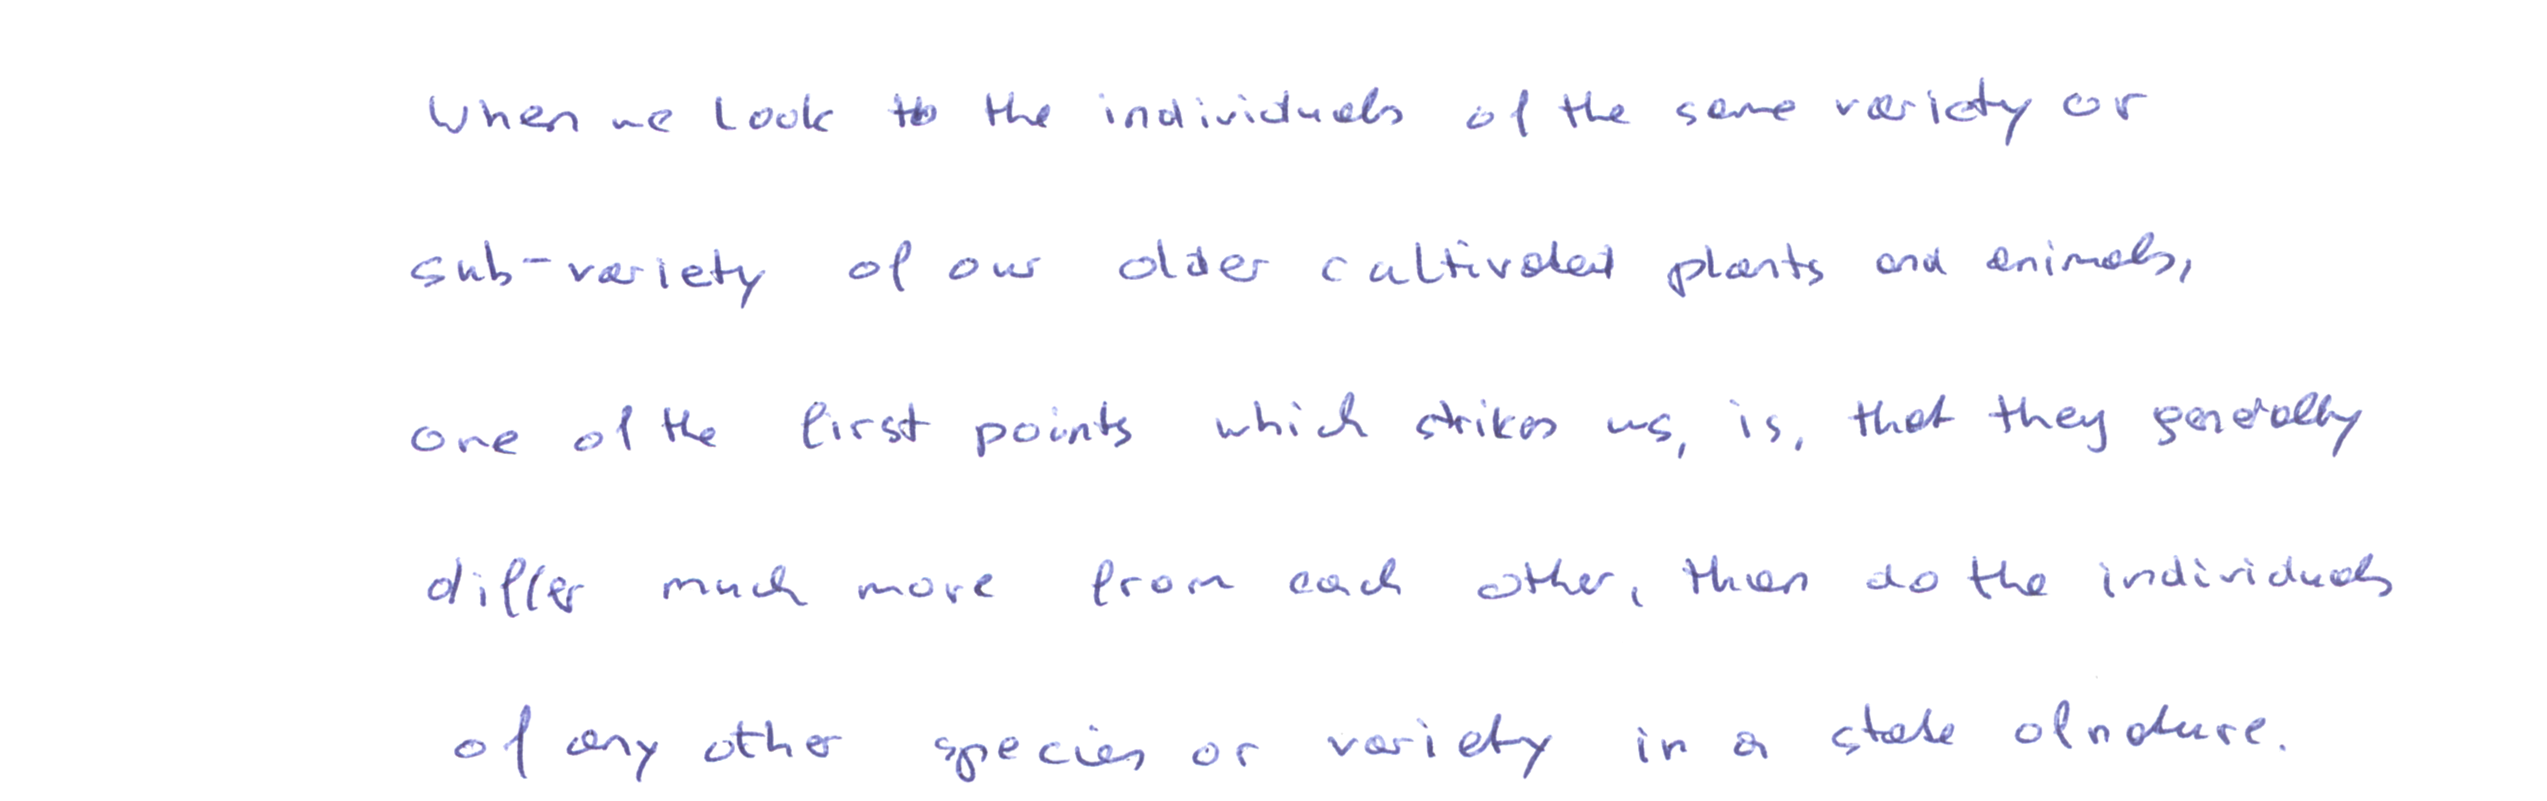 When we look to the individuals of the same variety or
sub-variety of our older cultivated plants and animals,
one of the first points which strikes us, is, that they generally
differ much more from each other, than do the individuals
of any other species or variety in a state of nature.